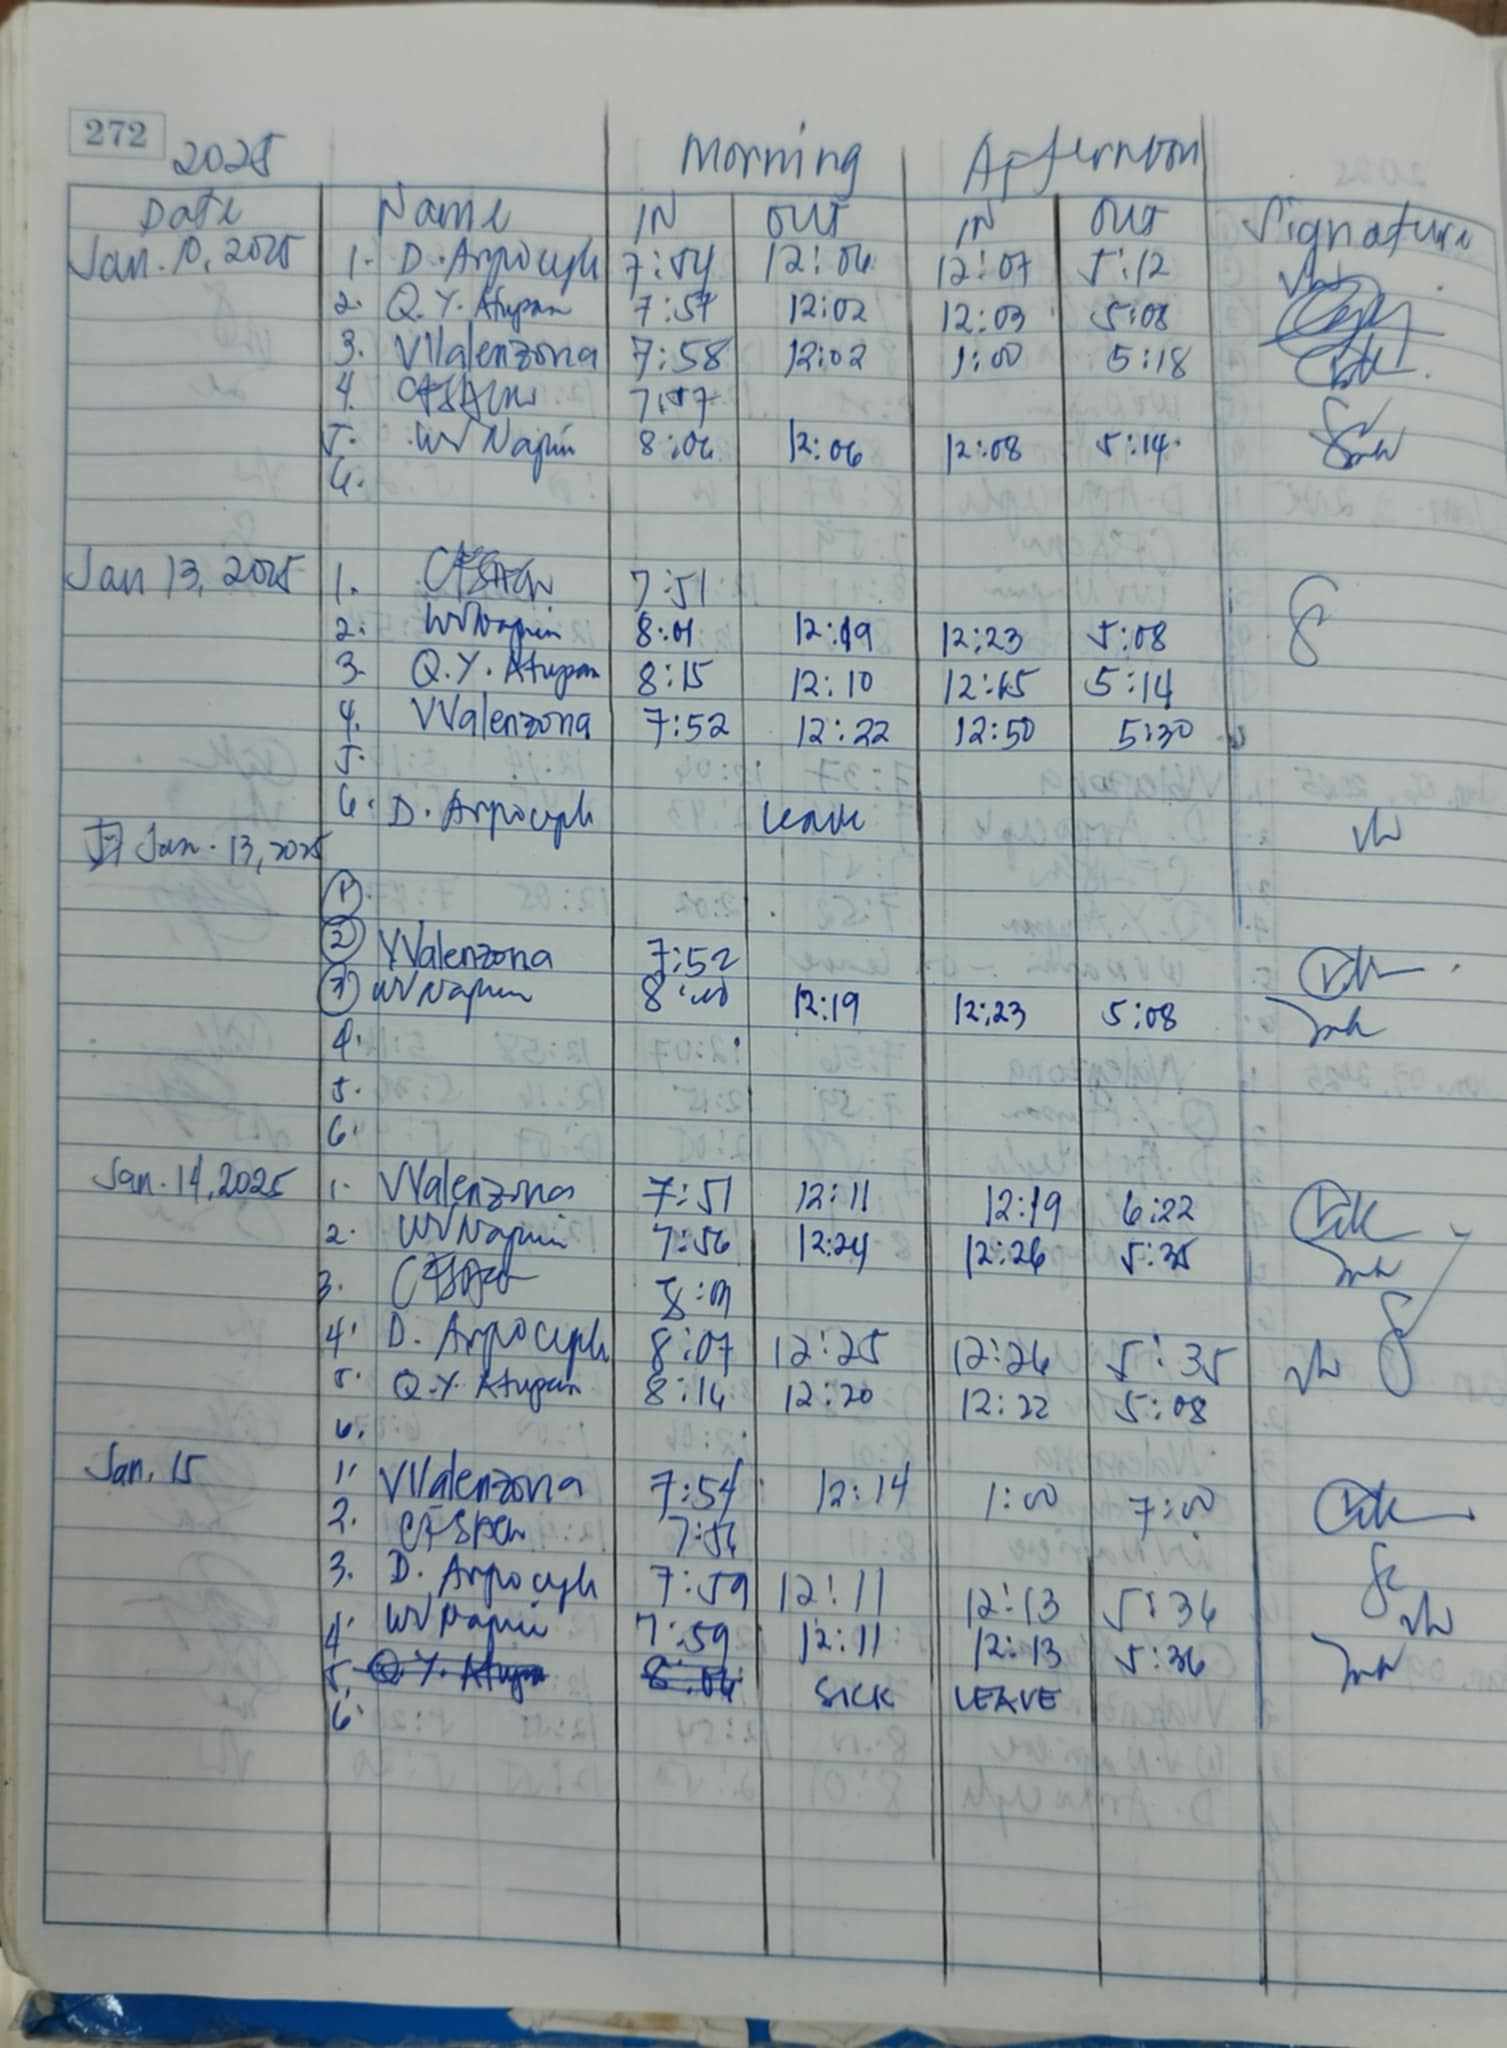 272
2025 Morning Afternoon
Date Name IN OUT IN OUT Signature
Jan. 10, 2025 1. D. Arpocyph 7:54 12:06 12:07 5:12
2. Q.Y. Atupan 7:57 12:02 12:03 5:08
3. VValenzona 7:58 12:02 1:00 5:18
4. 7:57
5. WV Napiu 8:06 12:06 12:08 5:14
6.
Jan 13, 2025 1. 7:51
2. WV Napiu 8:01 12:19 12:23 5:08
3. Q.Y. Atupan 8:15 12:10 12:15 5:14
4. VValenzona 7:52 12:22 12:50 5:30
5.
6. D. Arpocyph Leave
Jan. 13, 2025
1
2 VValenzona 7:52
3 WV Napiu 8:00 12:19 12:23 5:08
4.
5.
6.
Jan. 14, 2025 1. VValenzona 7:51 12:11 12:19 6:22
2. WV Napiu 7:56 12:24 12:26 5:35
3. 8:01
4. D. Arpocyph 8:07 12:25 12:26 5:35
5. Q.Y. Atupan 8:14 12:20 12:22 5:08
6.
Jan. 15 1. VValenzona 7:54 12:14 1:00 7:00
2. 7:56
3. D. Arpocyph 7:59 12:11 12:13 5:36
4. WV Napiu 7:59 12:11 12:13 5:36
5. Q.Y. Atupan 8:06 SICK LEAVE
6.